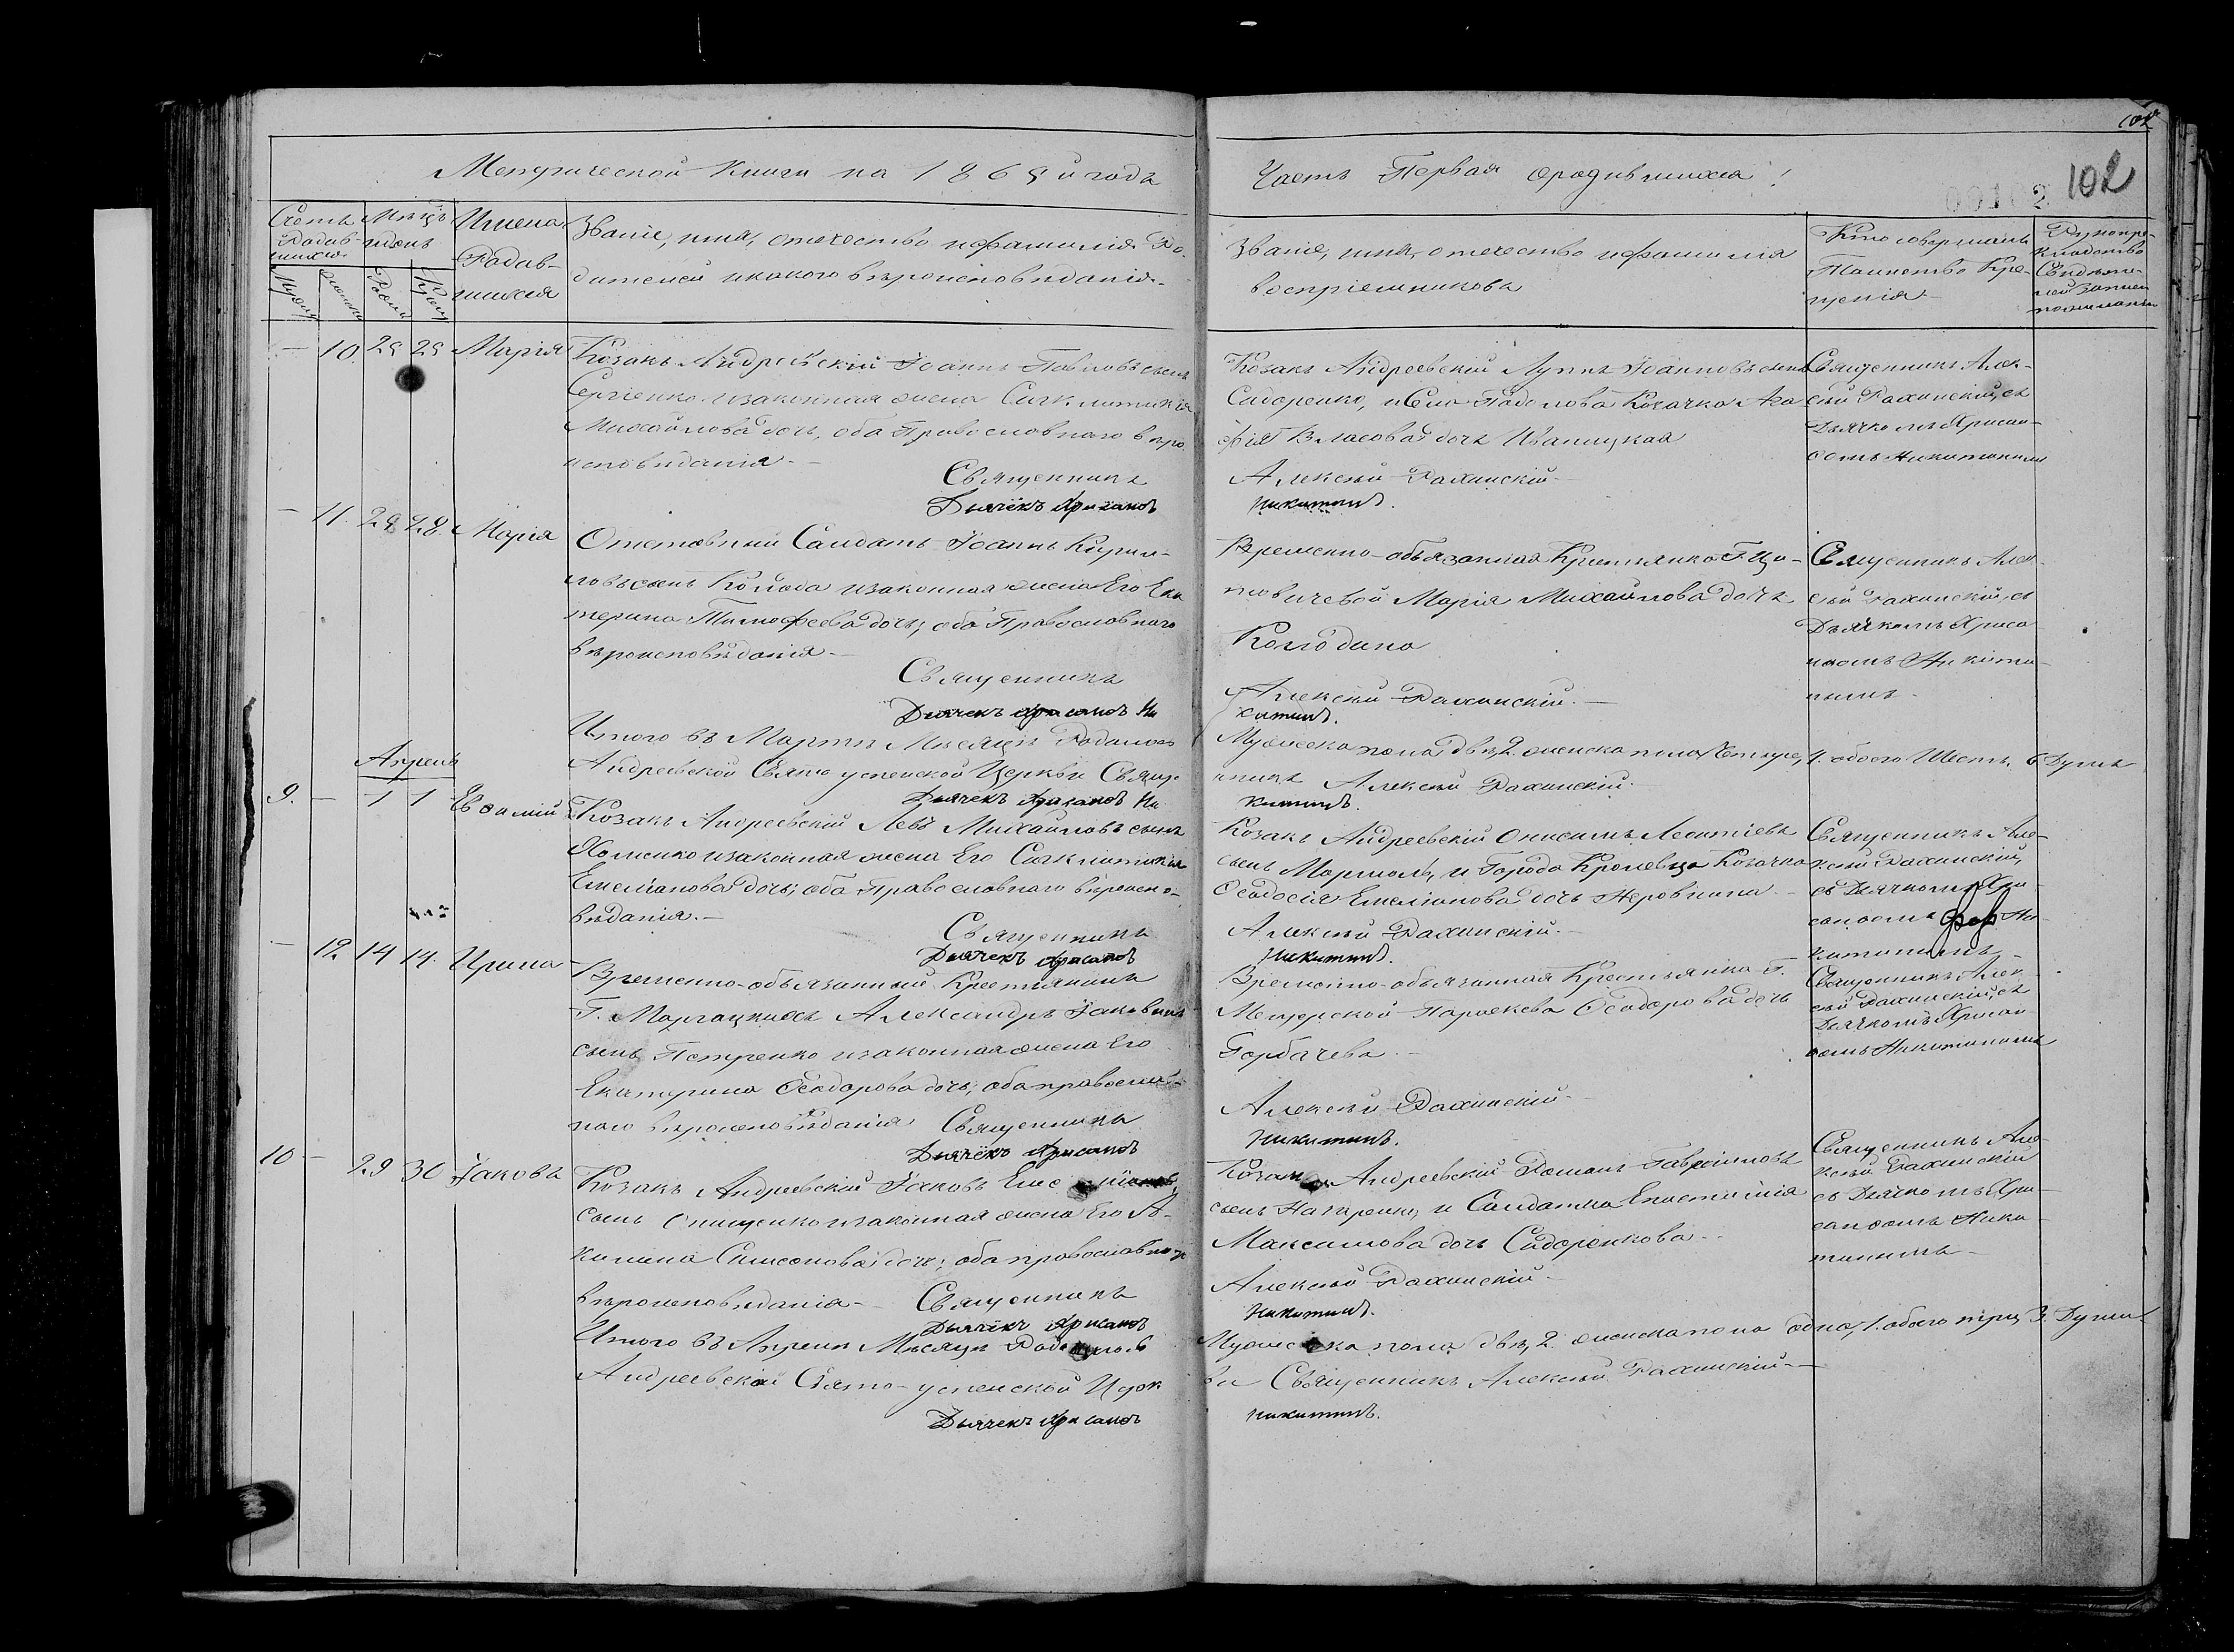 102
Метрической Книги на 1865й года
Часть Первая ородившихся!
102
00102
Счетъ
Родив-
шихся.
Мужеска
Женска
Мѣсцъ
идень
Рожд
Крещ
Имена
Родив-
шихся
Званіе, имя, отечество ифамилія Ро-
дителей икакого вѣроисповѣданія.
Званіе, имя, отечество ифамилія
воспріемниковъ
Кто совершалъ
Таинство Кре-
щенія
Рукопри-
кладство
Свидѣте-
лей записи
пожеланію
— 10. 25 25 Марія
Козакъ Андреевскій Іоаннъ Павловъ сынъ
Сергіенко изаконная жена Синклитикія
Михайлова дочь, оба Православнаго вѣро
исповѣданія.—
Священникъ
Дьячекъ Хрисанѳъ
Козакъ Андреевскій Луппъ Іоанновъ сынъ
Сидоренко, иСела Подолова Козачка Ага
фія Власова дочь Иваницкая
Алексѣй Рахинскій
Никитинъ.
Священникъ Алек-
сѣй Рахинскій, съ
Дьячкомъ Хрисан-
ѳомъ Никитинымъ
— 11. 28 28. Марія
Отставный Салдатъ Іоаннъ Кирил-
ловъ сынъ Коляда изаконная жена Его Ека
терина Тимофеева дочь; оба Православнаго
вѣроисповѣданія.—
Священникъ
Дьячекъ Хрисанѳъ Ни
Временно-обязанная Крестьянка Г.
Марія Михайлова дочь
Колодина
Алексѣй Рахинскій.—
китинъ.
Священникъ Алек-
сѣй Рахинскій съ
Дьячкомъ Хриса
нѳомъ Никити-
нымъ
Итого въ Мартѣ Мѣсяцѣ Родилось
Андреевской Свято успенской Церкви Свяще
Дьячекъ Хрисанѳъ Ни
Мужеска пола двѣ, 2. женска пола Четыре, 4. обоего Шесть, 6 Душъ
нникъ Алексѣй Рахинскій.
китинъ.
Апрель
9. — 1 1 Евѳимій
Козакъ Андреевскій Левъ Михайловъ сынъ
Хоменко изаконная жена Его Синклитикія
Емеліанова дочь; оба Православнаго вѣроиспо-
вѣданія.—
Священникъ
Дьячекъ Хрисанѳъ
Козакъ Андреевскій Онисимъ Леонтіевъ
сынъ и Города Кролевца Козачка
Ѳеодосія Емеліанова дочь
Алексѣй Рахинскій.—
Никитинъ.
Священникъ Але-
ксѣй Рахинскій,
съ Дьячкомъ Хри-
санѳомъ Ни-
китинымъ
— 12 14 14. Ирина
Временно-обязанный Крестьянинъ
Г. Александръ Іаковлевъ
сынъ Петренко изаконная жена Его
Екатерина Ѳеодорова дочь; оба православ-
наго вѣроисповѣданія Священникъ
Дьячекъ Хрисанѳъ
Временно-обязанная Крестьянка Г.
Мещерской Параскева Ѳеодорова дочь
Горбачева.—
Алексѣй Рахинскій
Никитинъ.
Священникъ Алек
сѣй Рахинскій, съ
Дьячкомъ Хрисан-
ѳомъ Никитинымъ
10 — 29 30 Іаковъ
Козакъ Андреевскій Іаковъ
сынъ Онищенко изаконная жена Его А-
килина Симеонова дочь; оба православнаго
вѣроисповѣданія.— Священникъ
Дьячекъ Хрисанѳъ
Козакъ Андреевскій Романъ Гавріиловъ
сынъ Назаренко, и Салдатка Епистимія
Максимова дочь Сидоренкова
Алексѣй Рахинскій
Никитинъ.
Священникъ Але-
ксѣй Рахинскій
съ Дьячкомъ Хри-
санѳомъ Ники-
тинымъ
Итого въ Апрели Мѣсяцѣ Родилось
Андреевской Свято-успенской Церк
Дьячекъ Хрисанѳъ
Мужеска пола двѣ, 2. женска пола одна, 1. обоего три, 3. Души
ви Священникъ Алексѣй Рахинскій
никитинъ.